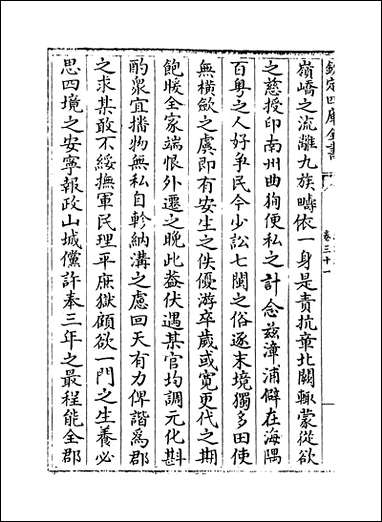 欽定四庫全書
卷三十一
嶺嶠之流離九族疇依一身是責抗章北闕輙蒙從欲
之慈授印南州曲狥便私之計念兹漳浦僻在海隅
百粤之人好争民今少訟七閩之俗逐末境獨多田使
無橫斂之虞即有安生之佚優游卒歲或寛更代之期
飽暖全家端恨外遷之晚此葢伏遇某官均調元化斟
酌衆宜播物無私自軫納溝之慮回天有力俾諧為郡
之求某敢不綏撫軍民理平庶獄顧欲一門之生養必
思四境之安寧報政山城儻許奏三年之最程能全郡